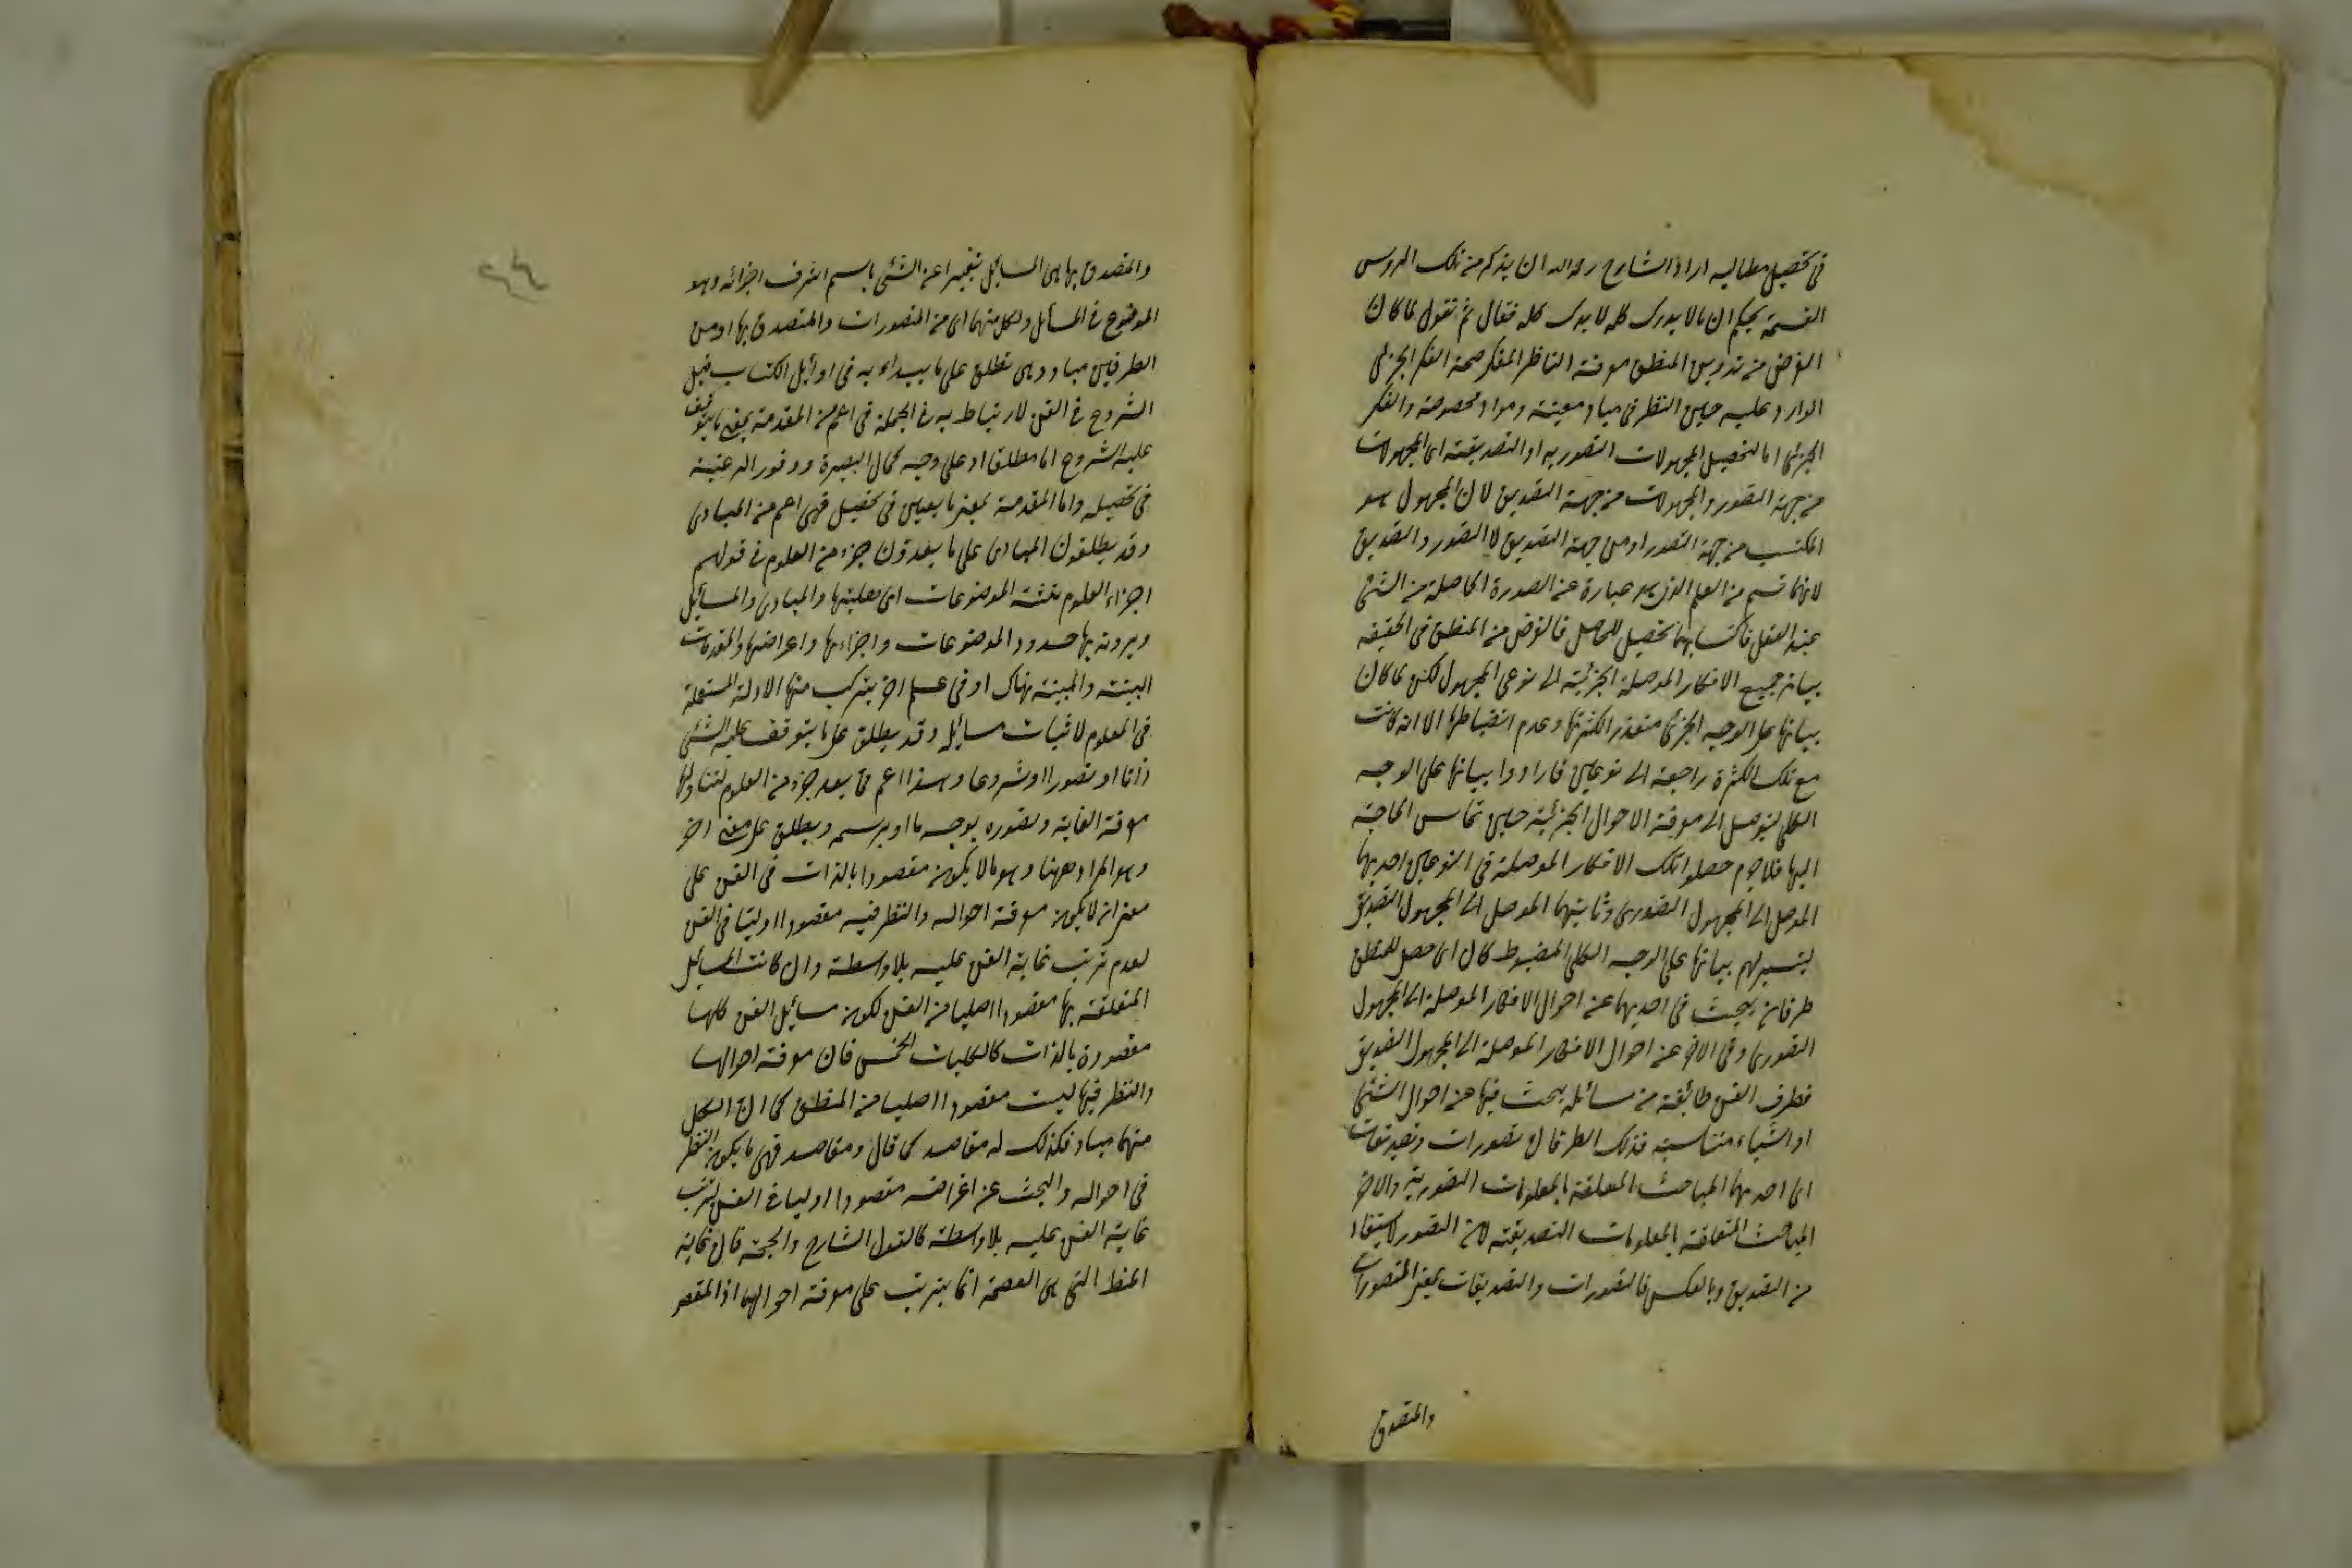 في تحصيل مطالبه اراد الشارح رحمه الله ان يذكر من تلك الروس
القسمة بحكم ان ما لا يدرك كله لا يترك كله فقال ثم نقول لما كان
الغرض من تدوين المنطق معرفة الناظر المفكر صحة الفكر الجزئي
الوارد عليه حين النظر في مباد معينة ومواد مخصوصة والفكر
الجزئي اما لتحصيل المجهولات التصورية او التصديقية اي المجهولات
من جهة التصور والمجهولات من جهة التصديق لان المجهول هو
المكتسب من جهة التصور او من جهة التصديق لا التصور والتصديق
لانهما قسم من العلم الذي هو عبارة عن الصورة الحاصلة من الشئ
عند العقل فاكتسابهما تحصيل للحاصل فالغرض من المنطق في الحقيقة
بيان جميع الافكار الموصلة الجزئية الى نوعي المجهول لكن لما كان
بيانها على الوجه الجزئي متعذرا لكثرتها وعدم انضباطها الا انه كانت
مع تلك الكثرة راجعة الى نوعين فارادوا بيانها على الوجه
الكلي ليتوصل الى معرفة الاحوال الجزئية حين تماس الحاجة
اليها فلا جرم حصلوا تلك الافكار الموصلة في النوعين احديهما
الموصل الى المجهول التصوري وثانيهما الموصل الى المجهول التصديقي
ليتيسر لهم بيانها على الوجه الكلي المضبوط كان اي حصل للمنطق
طرفان يبحث في احديهما عن احوال الافكار الموصلة الى المجهول
التصوري وفي الاخر عن احوال الافكار الموصلة الى المجهول التصديقي
فطرف الفن طائفة من مسائله يبحث فيها عن احوال الشئ
او اشياء متناسبة فذلك الطرفان تصورات وتصديقات
اي احديهما المباحث المتعلقة بالمعلومات التصورية والاخر
المباحث المتعلقة بالمعلومات التصديقية لان التصور لا يستفاد
من التصديق وبالعكس فالتصورات والتصديقات بمعنى المتصورات
والمتصدق
والمتصدق بها هي المسائل تعبيرا عن الشئ باسم اشرف اجزائه وهو
الموضوع في المسائل ولكل منهما اي من المتصورات والمتصدق بها او من
الطرفين مباد وهي تطلق على ما يبداء به في اوائل الكتاب قبل
الشروع في الفن لارتباط به في الجملة فهي اعم من المقدمة بمعنى ما يتوقف
عليه الشروع اما مطلقا او على وجه كمال البصيرة ووفور الرغبة
في تحصيله واما المقدمة بمعنى ما يعين في تحصيل فهي اعم من المبادى
وقد يطلقون المبادى على ما يعدون جزء من العلوم في قولهم
اجزاء العلوم ثلثة الموضوعات اي هليتها والمبادى والمسائل
ويريدون بها حدود الموضوعات واجزاءها واعراضها والمقدمات
البينة والمبينة هناك او في علم اخر يتركب منها الادلة المستعملة
في العلوم لاثبات مسائله وقد يطلق على ما يتوقف عليه الشئ
ذاتا او تصورا او شروعا وهذا اعم مما يعد جزء من العلوم لتناولها
معرفة الغاية وتصوره بوجه ما او برسمه ويطلق على معنى اخر
وهو المراد ههنا وهو ما لا يكون مقصودا بالذات في الفن على
معنى انه لا يكون معرفة احواله والنظر فيه مقصودا اوليا في الفن
لعدم ترتب غاية الفن عليه بلا واسطة وان كانت المسائل
المتعلقة بها مقصودا اصليا من الفن لكون مسائل الفن كلها
مقصودة بالذات كالكليات الخمس فان معرفة احوالها
والنظر فيها ليست مقصودا اصليا من المنطق كما ان لكل
منهما مباد فكذلك له مقاصد كما قال ومقاصد فهي ما يكون النظر
في احواله والبحث عن اعراضه مقصودا اوليا في الفن لترتب
غاية الفن عليه بلا واسطة كالقول الشارح والحجة فان غاية
المنطق التي هي العصمة انما يترتب على معرفة احوالهما اذ المقصو